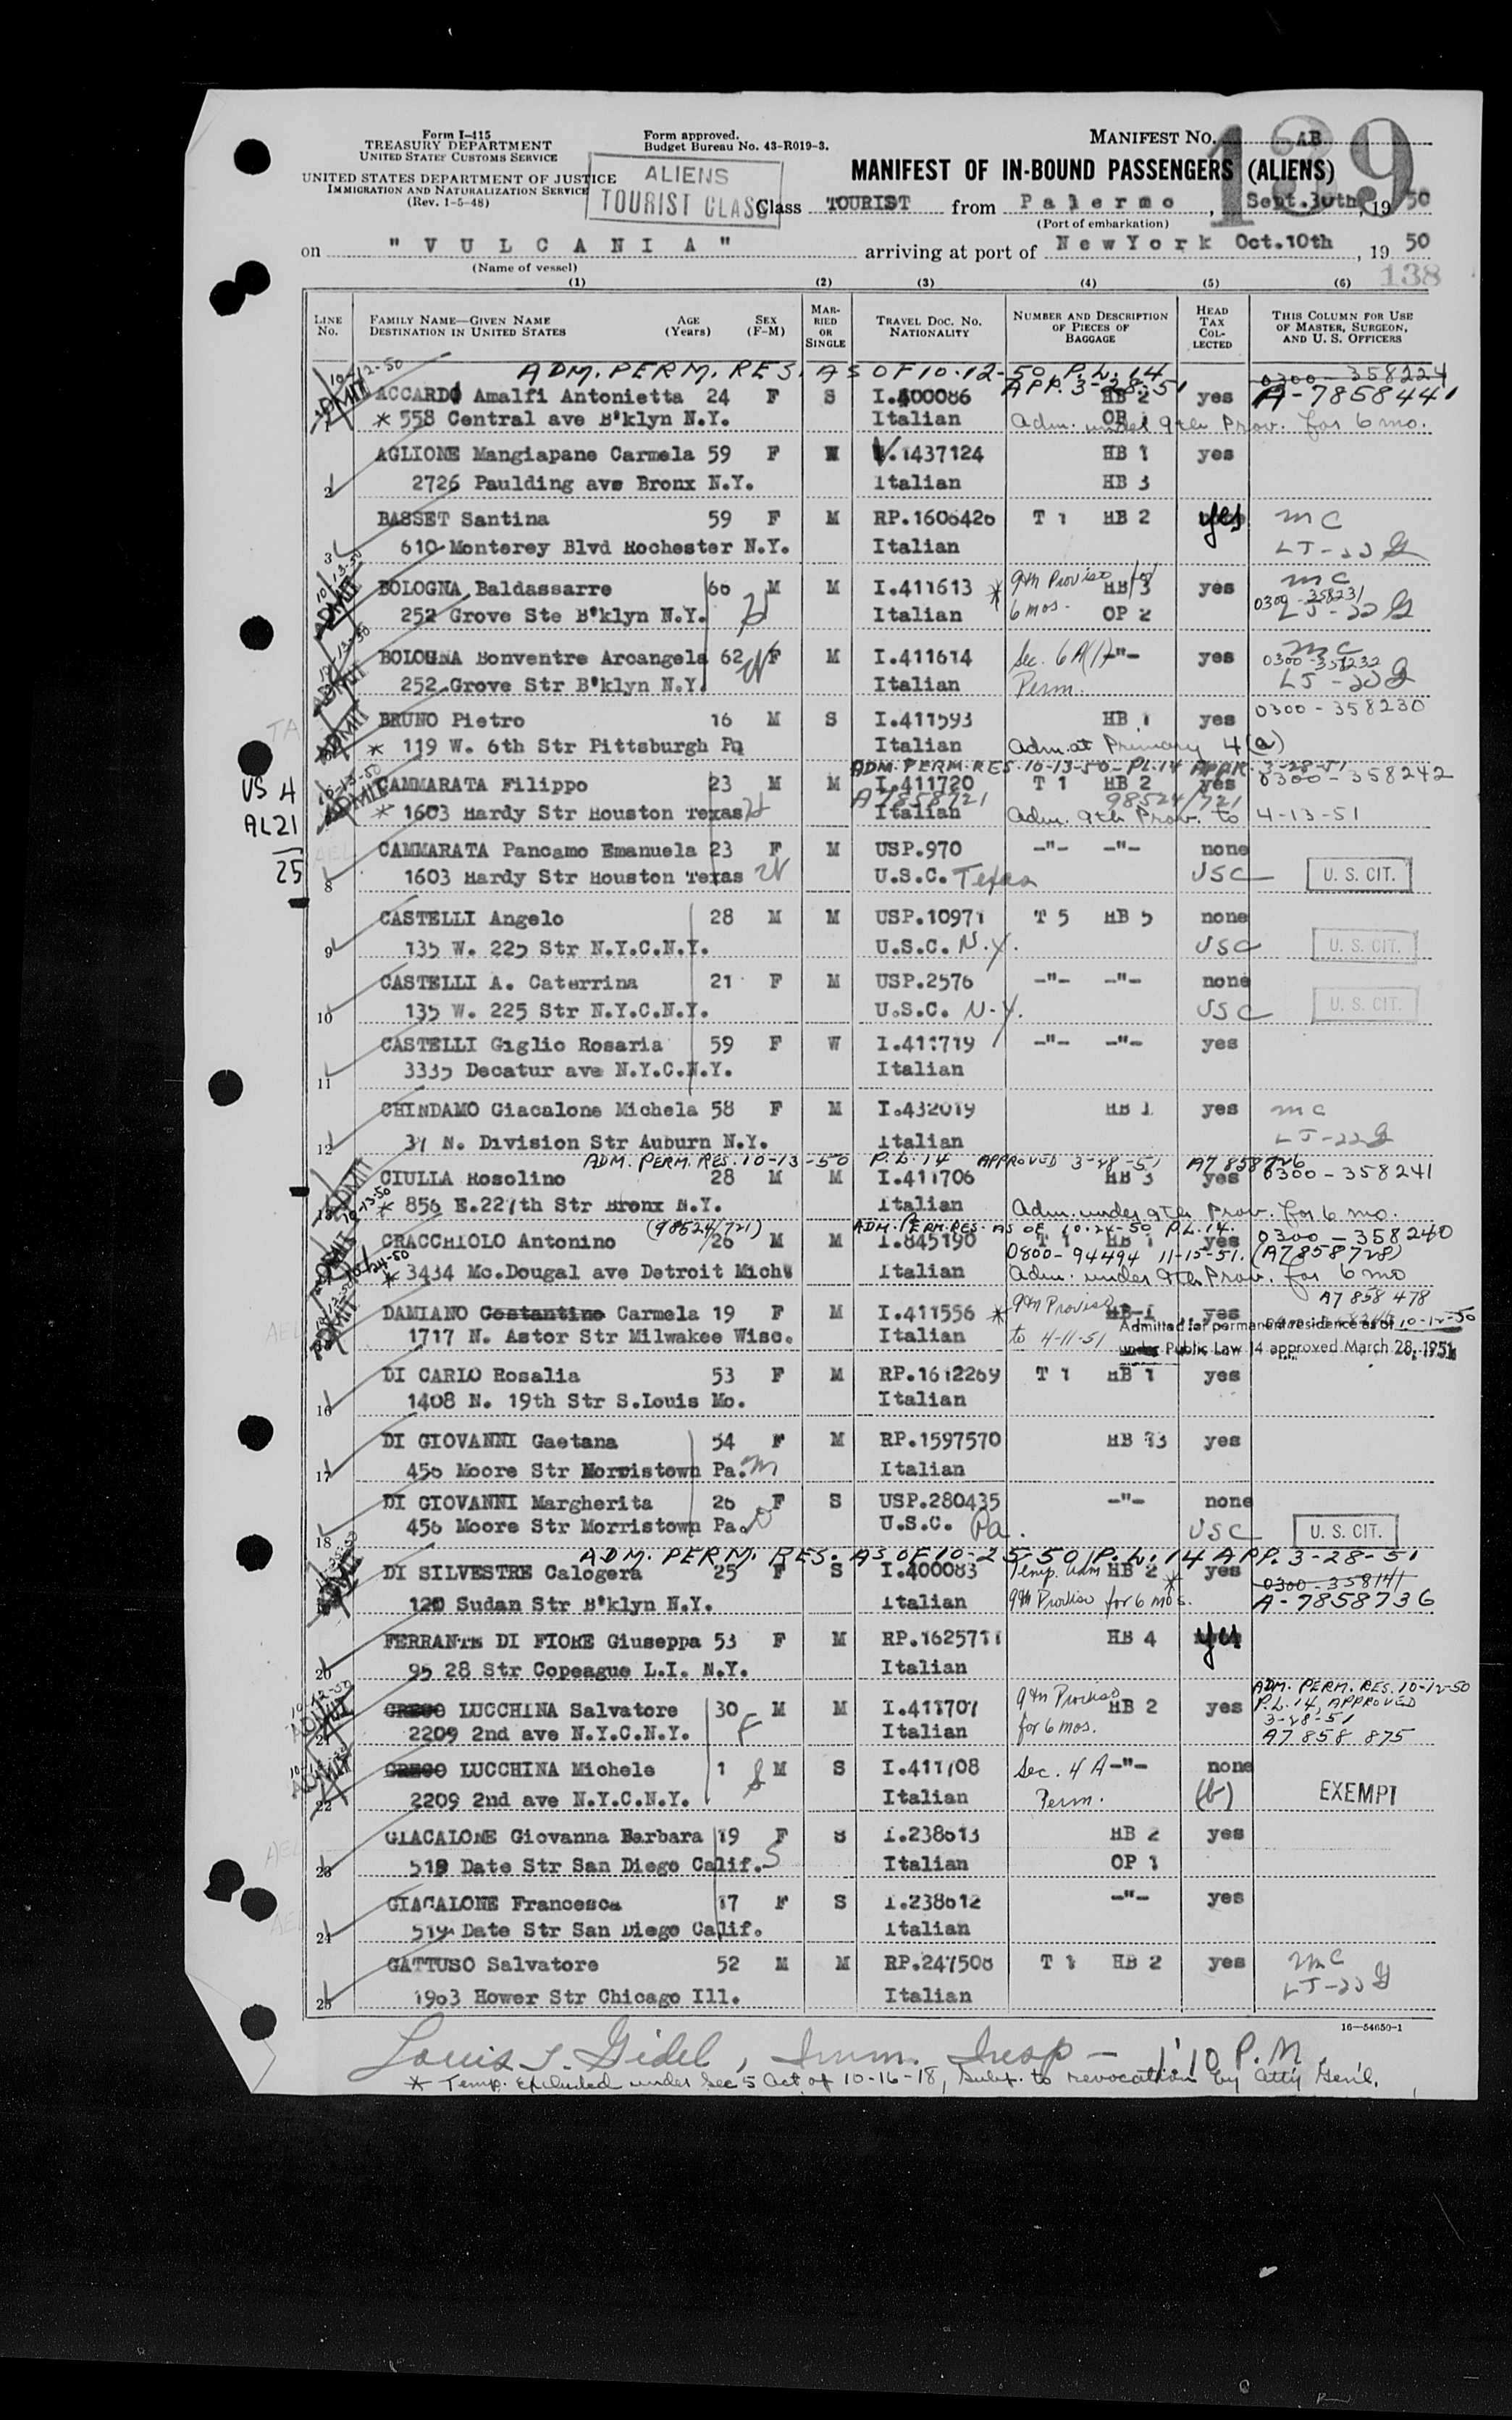 Form I-415
TREASURY DEPARTMENT
UNITED STATES CUSTOMS SERVICE
UNITED STATES DEPARTMENT OF JUSTICE
IMMIGRATION AND NATURALIZATION SERVICE
(Rev. 1-5-48)
Form approved.
Budget Bureau No. 43-R019-3.
ALIENS
TOURIST CLASS
MANIFEST No. AB
139
MANIFEST OF IN-BOUND PASSENGERS (ALIENS)
Class TOURIST from Palermo, Sept.30th, 19 50
(Port of embarkation)
on "VULCANIA" arriving at port of NewYork Oct.10th, 19 50
(Name of vessel)
138
(1) (2) (3) (4) (5) (6)
LINE No. FAMILY NAME—GIVEN NAME DESTINATION IN UNITED STATES AGE (Years) SEX (F-M) MARRIED OR SINGLE TRAVEL DOC. NO. NATIONALITY NUMBER AND DESCRIPTION OF PIECES OF BAGGAGE HEAD TAX COLLECTED THIS COLUMN FOR USE OF MASTER, SURGEON, AND U. S. OFFICERS
10-12-50 ADM. PERM. RES. AS OF 10-12-50 P.L. 14 APP. 3-28-51 0300-358224
ADMIT ACCARDO Amalfi Antonietta 24 F S I.400086 HB 2 yes A-7858441
1 * 558 Central ave B'klyn N.Y. Italian OP 1 Adm. under 9th Prov. for 6 mo.
AGLIONE Mangiapane Carmela 59 F W V.1437124 HB 1 yes
2 2726 Paulding ave Bronx N.Y. Italian HB 3
BASSET Santina 59 F M RP.1606426 T 1 HB 2 yes MC
3 610 Monterey Blvd Rochester N.Y. Italian LJ-22
10-13-50 ADMIT BOLOGNA Baldassarre 60 M M I.411613 * 9th Proviso for HB 3 yes MC 0300-358231
252 Grove Ste B'klyn N.Y. Italian 6 mos. OP 2 LJ-22
ADMIT BOLOGNA Bonventre Arcangela 62 F M I.411614 Sec. 6A(1) -"- yes MC 0300-358232
252 Grove Str B'klyn N.Y. Italian Perm. LJ-22
ADMIT BRUNO Pietro 16 M S I.411593 HB 1 yes 0300-358230
* 119 W. 6th Str Pittsburgh Pa Italian Adm. at Primary 4(a)
10-13-50 ADM. PERM. RES. 10-13-50-PL.14 APPR. 3-28-51
ADMIT CAMMARATA Filippo 23 M M I.411720 T 1 HB 2 yes 0300-358242
A7858721 98524/721
* 1603 Hardy Str Houston Texas Italian Adm. 9th Prov. to 4-13-51
US 4
AL 21
25
CAMMARATA Pancamo Emanuela 23 F M USP.970 -"- -"- none
8 1603 Hardy Str Houston Texas U.S.C. Texas USC U. S. CIT.
CASTELLI Angelo 28 M M USP.10971 T 5 HB 5 none
9 135 W. 225 Str N.Y.C.N.Y. U.S.C. N.Y. USC U. S. CIT.
CASTELLI A. Caterrina 21 F M USP.2576 -"- -"- none
10 135 W. 225 Str N.Y.C.N.Y. U.S.C. N.Y. USC U. S. CIT.
CASTELLI Giglio Rosaria 59 F W I.411719 -"- -"- yes
11 3335 Decatur ave N.Y.C.N.Y. Italian
CHINDAMO Giacalone Michela 58 F M I.432019 HB 1 yes MC
12 31 N. Division Str Auburn N.Y. Italian LJ-22
ADM. PERM. RES. 10-13-50 P.L.14 APPROVED 3-28-51 A7858726
ADMIT CIULLA Rosolino 28 M M I.411706 HB 3 yes 0300-358241
13 10-13-50 * 856 E.227th Str Bronx N.Y. Italian Adm. under 9th Prov. for 6 mo.
(98524/721) ADM. PERM. RES. AS OF 10-24-50 P.L.14.
CRACCHIOLO Antonino 26 M M I.845190 T 1 HB 1 yes 0300-358240
10/24-50 0800-94494 11-15-51. (A7858728)
* 3434 Mc.Dougal ave Detroit Mich. Italian Adm. under 9th Prov. for 6 mo
A7 858 478
ADMIT DAMIANO Costantino Carmela 19 F M I.411556 * 9th Proviso HB-1 yes
1717 N. Astor Str Milwakee Wisc. Italian to 4-11-51 Admitted for permanent residence as of 10-12-50
under Public Law 14 approved March 28, 1951
DI CARLO Rosalia 53 F M RP.1612269 T 1 HB 1 yes
16 1408 N. 19th Str S.Louis Mo. Italian
DI GIOVANNI Gaetana 54 F M RP.1597570 HB 3 yes
17 456 Moore Str Norristown Pa. M Italian
DI GIOVANNI Margherita 26 F S USP.280435 -"- none
18 456 Moore Str Morristown Pa. D U.S.C. Pa. USC U. S. CIT.
ADM. PERM. RES. AS OF 10-25-50 P.L.14 APP. 3-28-51
DI SILVESTRE Calogera 25 F S I.400083 Temp. adm HB 2 * yes 0300-358141
120 Sudan Str B'klyn N.Y. Italian 9th Proviso for 6 mos. A-7858736
FERRANTE DI FIORE Giuseppa 53 F M RP.1625711 HB 4 yes
20 95 28 Str Copeague L.I. N.Y. Italian
10-12-50 ADM. PERM. RES. 10-12-50
ADMIT GRECO LUCCHINA Salvatore 30 M M I.411707 9th Proviso HB 2 yes P.L.14, APPROVED 3-28-51
21 2209 2nd ave N.Y.C.N.Y. F Italian for 6 mos. A7 858 875
ADMIT GRECO LUCCHINA Michele 1 M S I.411708 Sec. 4 A -"- none
22 2209 2nd ave N.Y.C.N.Y. S Italian Perm. (b) EXEMPT
GIACALONE Giovanna Barbara 19 F S I.238613 HB 2 yes
23 519 Date Str San Diego Calif. S Italian OP 1
GIACALONE Francesca 17 F S I.238612 -"- yes
24 519 Date Str San Diego Calif. Italian
GATTUSO Salvatore 52 M M RP.247508 T 1 HB 2 yes MC
25 1903 Hower Str Chicago Ill. Italian LJ-22
16—54650-1
Louis J. Gidel, Imm. Insp - 1:10 P.M.
* Temp. Excluded under Sec 5 Act of 10-16-18, subj. to revocation by Atty Gen'l.